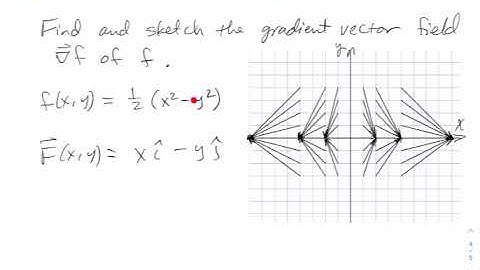 Find and sketch the gradient vector field
∇⃗f of f.
f(x,y) = ½ (x² - y²)
F⃗(x,y) = x î - y ĵ
y
x